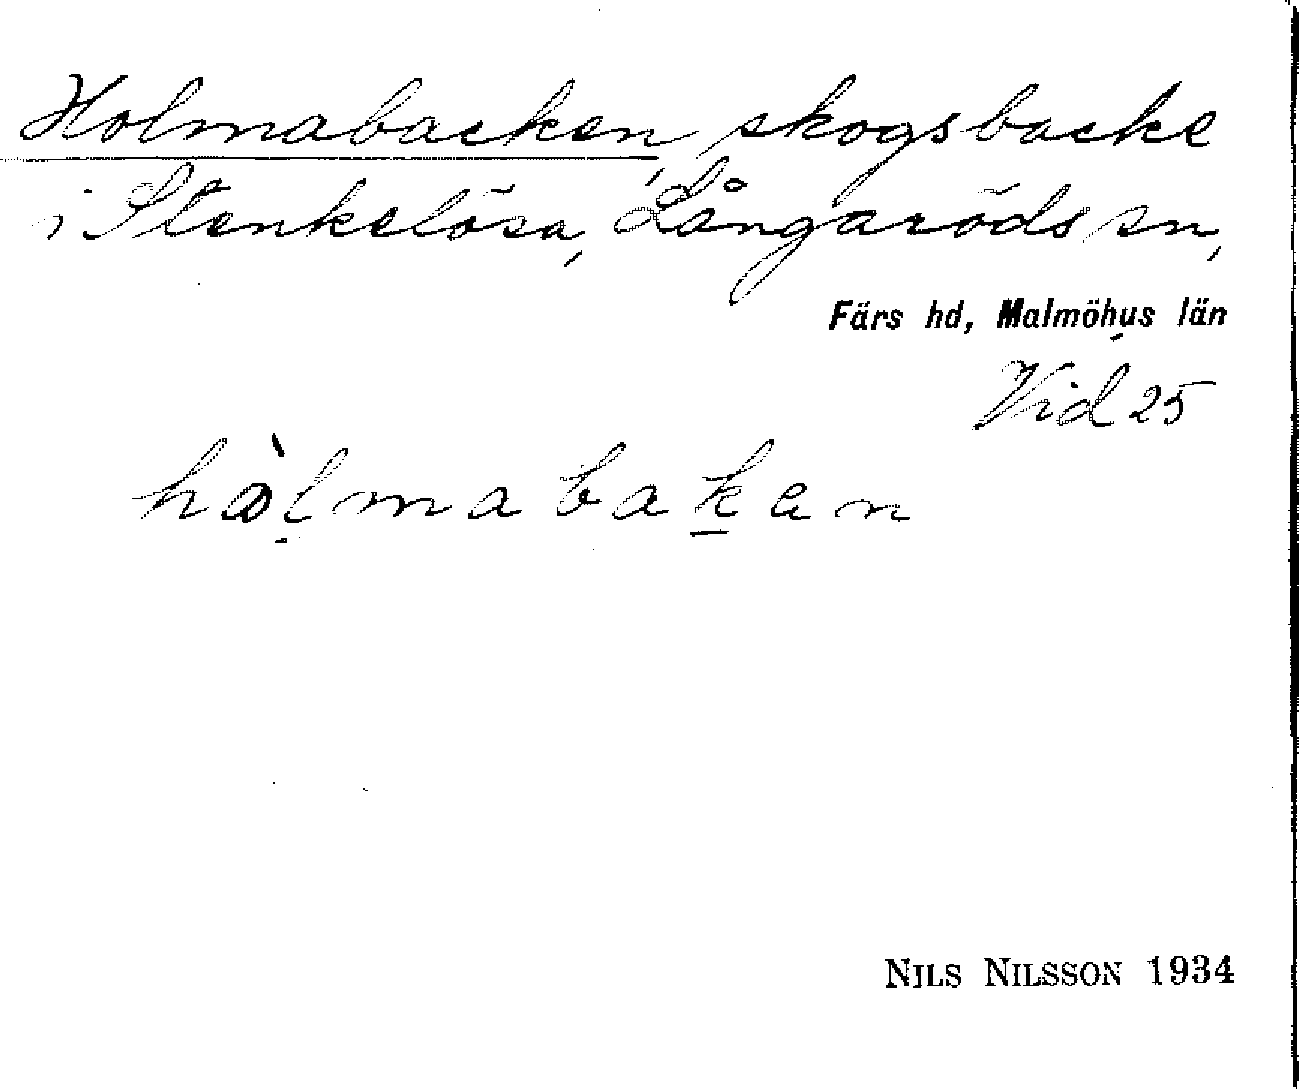 Holmabacken, skogsbacke
i Stenkelösa, Långaröds sn,
Färs hd, Malmöhus län
Vid 25
hòlmabaken
NILS NILSSON 1934